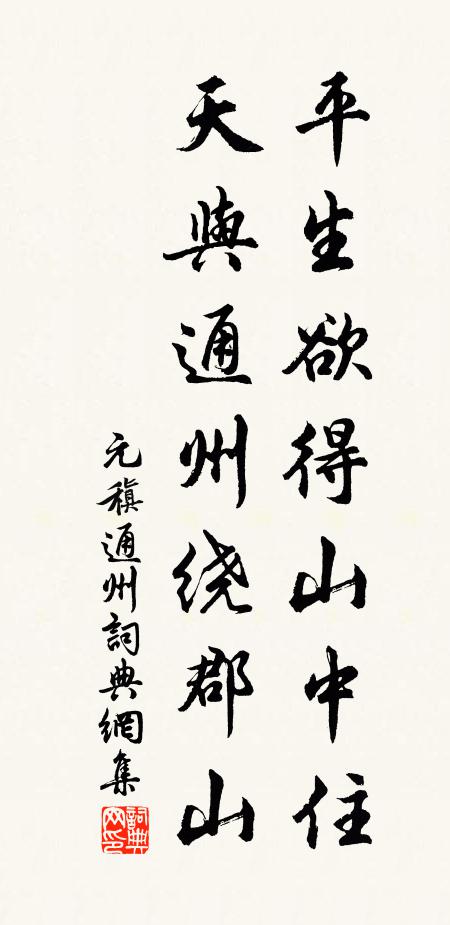 平生欲得山中住
天與通州绕郡山
元稹通州詞典網集
詞典網印